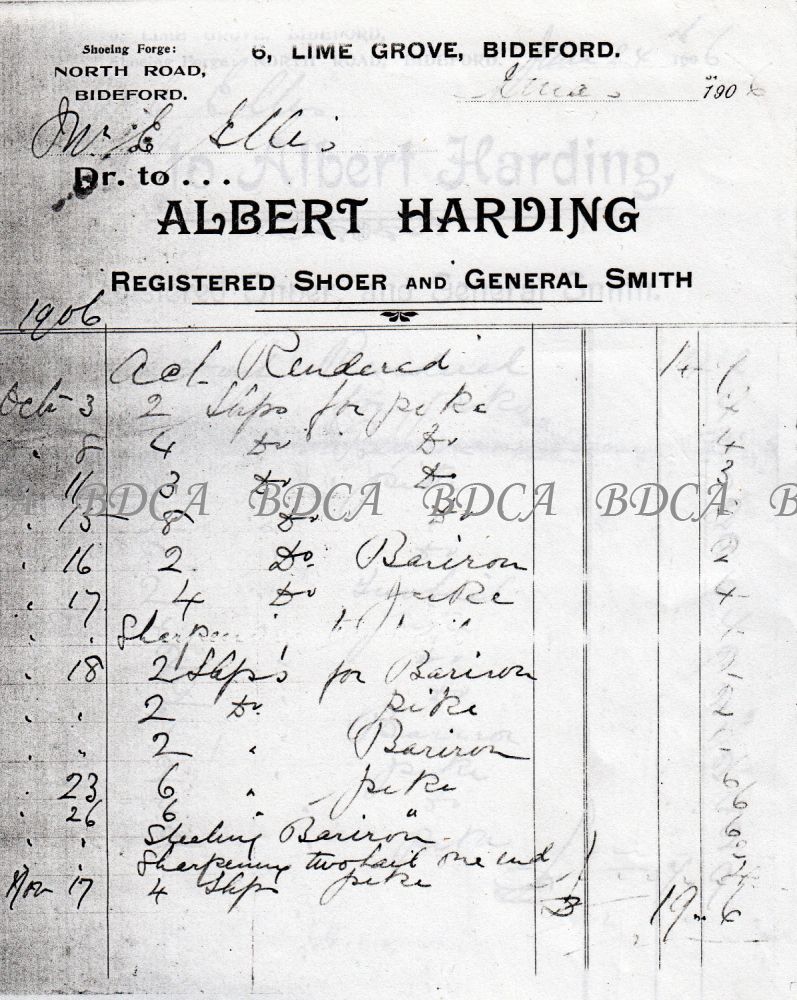 Shoeing Forge:
NORTH ROAD,
BIDEFORD.
6, LIME GROVE, BIDEFORD.
Xmas 1906
Mr E Ellis
Dr. to . . .
ALBERT HARDING
REGISTERED SHOER AND GENERAL SMITH
1906
Act Rendered 14
Oct 3 2 Slips for pike
" 8 4 Do Do 4
" 11 3 Do Do 3
BDCA BDCA BDCA BDCA B
" 15 8 Do Do
" 16 2 Do. Bariron 2
" 17 4 Do pike 4
" "
" 18 2 Slips for Bariron
" " 2 Do. pike 2
" " 2 " Bariron
" 23 6 " pike 6
" 26 6 " " 6
" " Steeling Bariron 6
Sharpening two bait one end
Nov 17 4 Slips pike
19 .. 6